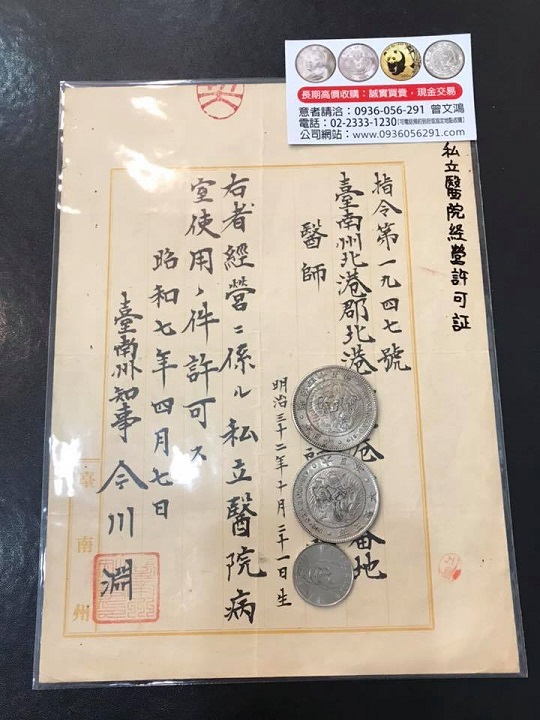 長期高價收購：誠實買賣，現金交易
意者請洽：0936-056-291 曾文鴻
電話：02-2333-1230
公司網站：www.0936056291.com
私立醫院経営許可証
指令第一九四七號
臺南州北港郡北港
番地
醫師
明治三十二年十月二十一日生
右者経營ニ係ル私立醫院病
室使用ノ件許可ス
昭和七年四月七日
臺南州知事 今川淵
臺南州